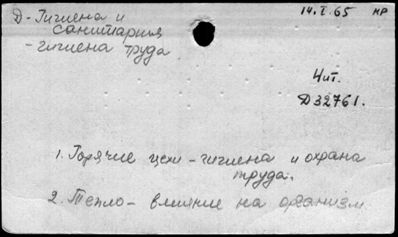 Д - Гигиена и
санитария
- гигиена труда
14.I.65 НР
Чит.
Д32761.
1. Горячие цехи - гигиена и охрана
труда.
2. Тепло - влияние на организм.